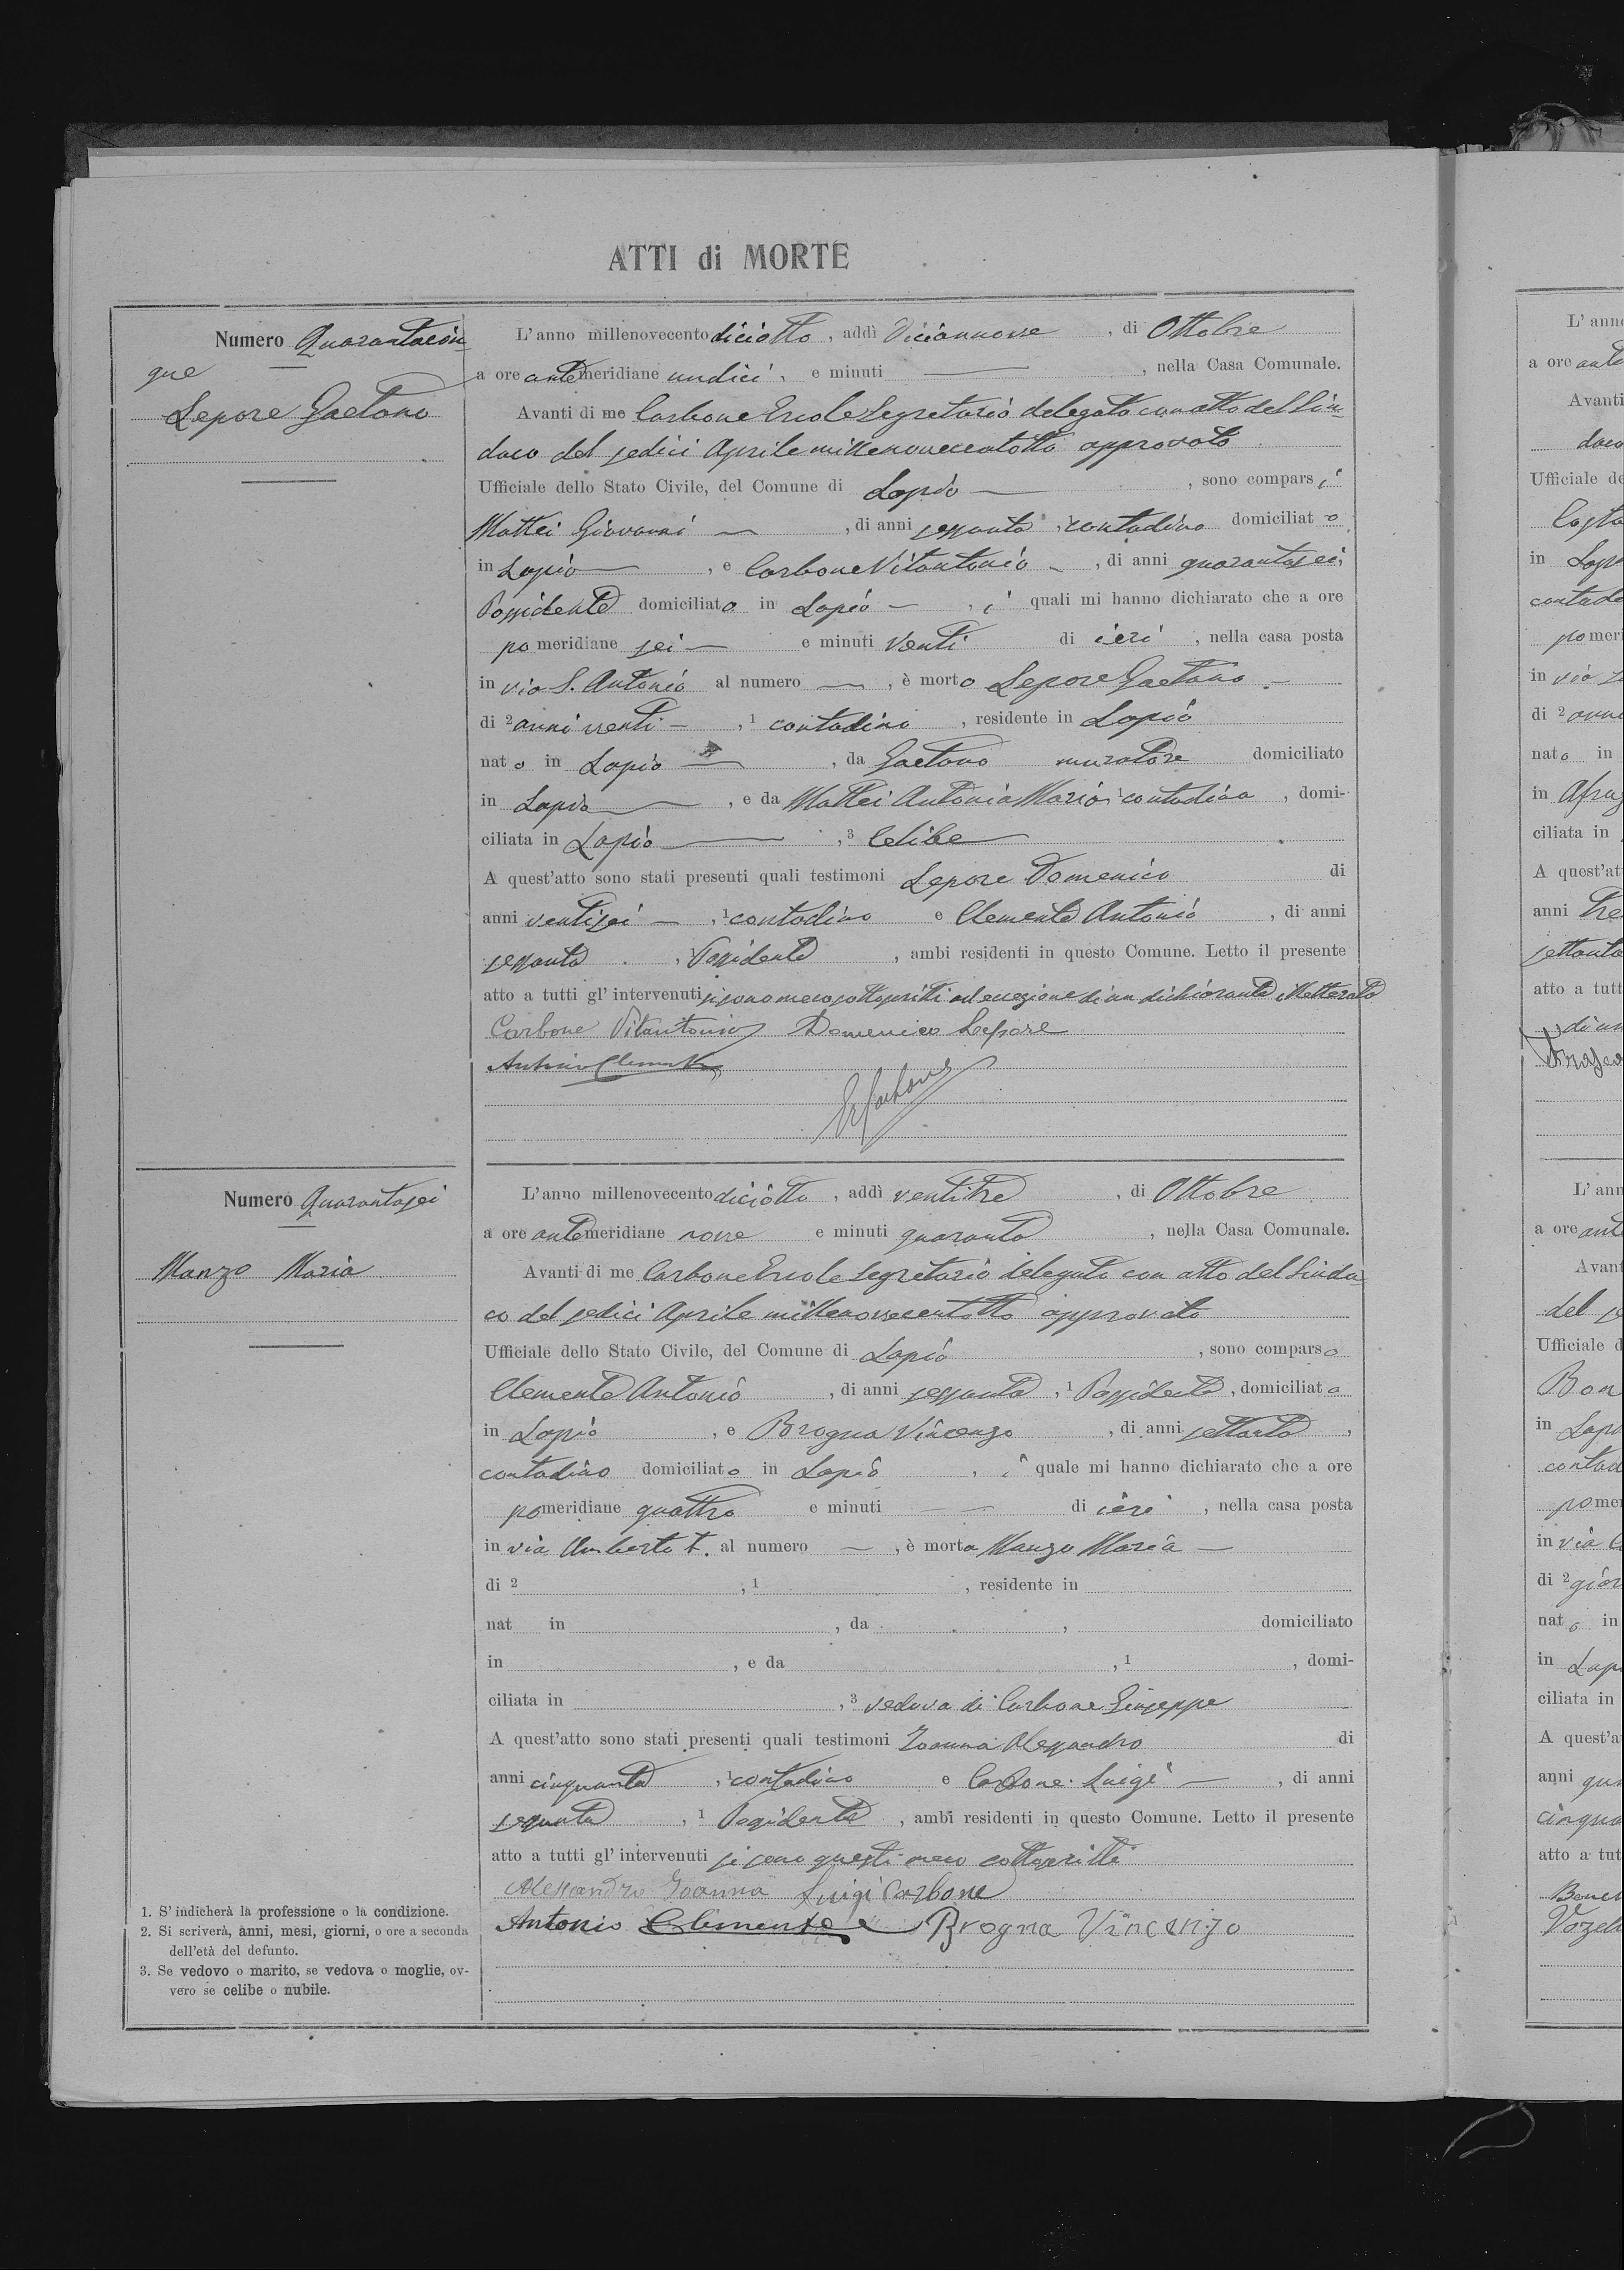 ATTI di MORTE
Numero Quarantacin
que
Lepore Gaetano
L'anno millenovecento diciotto, addì Diciannove, di Ottobre
a ore antemeridiane undici, e minuti —, nella Casa Comunale.
Avanti di me Carbone Ercole Segretario delegato con atto del Sin-
daco del sedici Aprile millenovecentotto approvato
Ufficiale dello Stato Civile, del Comune di Lapio —, sono comparsi
Mattei Giovanni —, di anni sessanta, ¹ contadino domiciliato
in Lapio —, e Carbone Vitantonio —, di anni quarantasei,
Possidente domiciliato in Lapio —, i quali mi hanno dichiarato che a ore
pomeridiane sei — e minuti venti di ieri, nella casa posta
in via S. Antonio al numero —, è morto Lepore Gaetano —
di ² anni venti —, ¹ contadino, residente in Lapio
nato in Lapio —, da Gaetano muratore domiciliato
in Lapio —, e da Mattei Antonia Maria, ¹ contadina, domi-
ciliata in Lapio —, ³ Celibe —
A quest'atto sono stati presenti quali testimoni Lepore Domenico di
anni ventisei —, ¹ contadino e Clemente Antonio, di anni
sessanta, Possidente, ambi residenti in questo Comune. Letto il presente
atto a tutti gl'intervenuti si sono meco sottoscritti ad eccezione di un dichiarante illetterato
Carbone Vitantonio Domenico Lepore
Antonio Clemente
E Carbone
Numero Quarantasei
Manzo Maria
L'anno millenovecento diciotto, addì ventitre, di Ottobre
a ore antemeridiane nove e minuti quaranta, nella Casa Comunale.
Avanti di me Carbone Ercole Segretario delegato con atto del Sinda-
co del sedici Aprile millenovecentotto approvato
Ufficiale dello Stato Civile, del Comune di Lapio, sono comparso
Clemente Antonio, di anni sessanta, ¹ Possidente, domiciliato
in Lapio, e Brogna Vincenzo, di anni settanta,
contadino domiciliato in Lapio, i quale mi hanno dichiarato che a ore
pomeridiane quattro e minuti — di ieri, nella casa posta
in via Umberto I. al numero —, è morta Manzo Maria —
di ² , ¹ , residente in
nat in , da , domiciliato
in , e da , ¹ , domi-
ciliata in , ³ vedova di Carbone Giuseppe
A quest'atto sono stati presenti quali testimoni Ioanna Alessandro di
anni cinquanta, ¹ contadino e Carbone Luigi —, di anni
sessanta, ¹ Possidente, ambi residenti in questo Comune. Letto il presente
atto a tutti gl'intervenuti si sono questi meco sottoscritti
Alessandro Ioanna Luigi Carbone
Antonio Clemente Brogna Vincenzo
1. S'indicherà la professione o la condizione.
2. Si scriverà, anni, mesi, giorni, o ore a seconda
dell'età del defunto.
3. Se vedovo o marito, se vedova o moglie, ov-
vero se celibe o nubile.